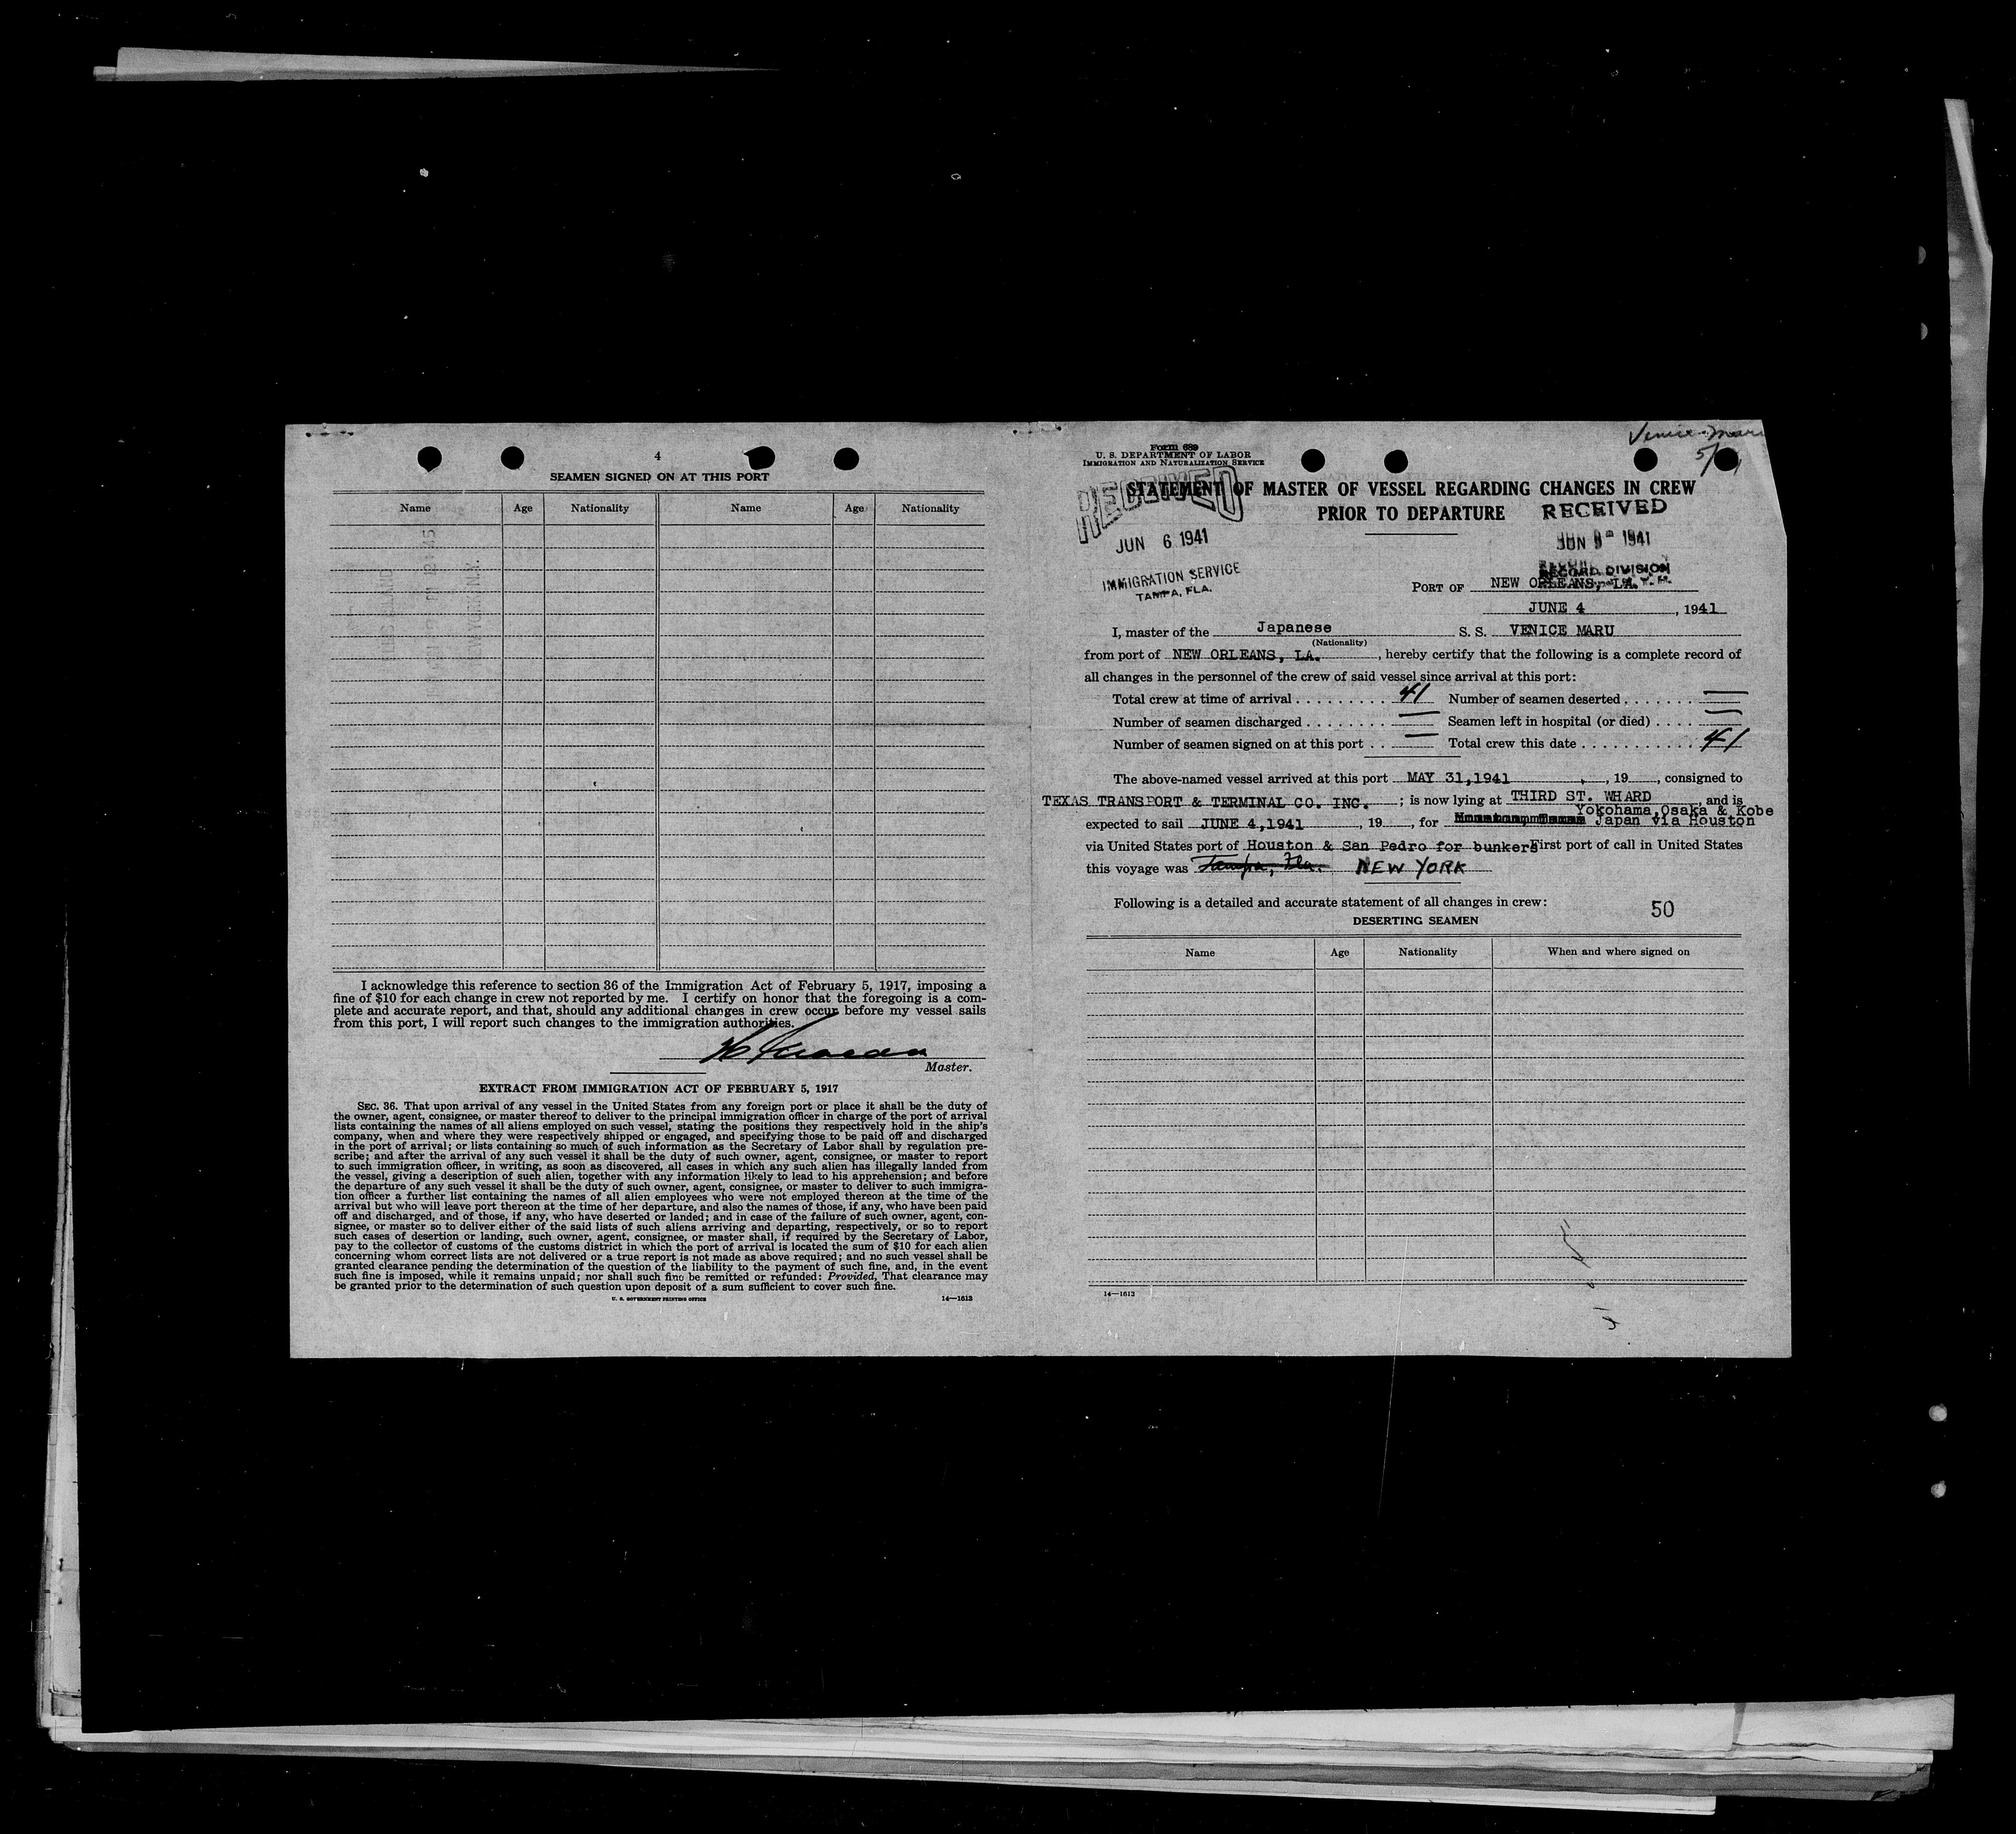 4
SEAMEN SIGNED ON AT THIS PORT
Name Age Nationality Name Age Nationality
I acknowledge this reference to section 36 of the Immigration Act of February 5, 1917, imposing a
fine of $10 for each change in crew not reported by me. I certify on honor that the foregoing is a com-
plete and accurate report, and that, should any additional changes in crew occur before my vessel sails
from this port, I will report such changes to the immigration authorities.
Master.
EXTRACT FROM IMMIGRATION ACT OF FEBRUARY 5, 1917
SEC. 36. That upon arrival of any vessel in the United States from any foreign port or place it shall be the duty of
the owner, agent, consignee, or master thereof to deliver to the principal immigration officer in charge of the port of arrival
lists containing the names of all aliens employed on such vessel, stating the positions they respectively hold in the ship's
company, when and where they were respectively shipped or engaged, and specifying those to be paid off and discharged
in the port of arrival; or lists containing so much of such information as the Secretary of Labor shall by regulation pre-
scribe; and after the arrival of any such vessel it shall be the duty of such owner, agent, consignee, or master to report
to such immigration officer, in writing, as soon as discovered, all cases in which any such alien has illegally landed from
the vessel, giving a description of such alien, together with any information likely to lead to his apprehension; and before
the departure of any such vessel it shall be the duty of such owner, agent, consignee, or master to deliver to such immigra-
tion officer a further list containing the names of all alien employees who were not employed thereon at the time of the
arrival but who will leave port thereon at the time of her departure, and also the names of those, if any, who have been paid
off and discharged, and of those, if any, who have deserted or landed; and in case of the failure of such owner, agent, con-
signee, or master so to deliver either of the said lists of such aliens arriving and departing, respectively, or so to report
such cases of desertion or landing, such owner, agent, consignee, or master shall, if required by the Secretary of Labor,
pay to the collector of customs of the customs district in which the port of arrival is located the sum of $10 for each alien
concerning whom correct lists are not delivered or a true report is not made as above required; and no such vessel shall be
granted clearance pending the determination of the question of the liability to the payment of such fine, and, in the event
such fine is imposed, while it remains unpaid; nor shall such fine be remitted or refunded: Provided, That clearance may
be granted prior to the determination of such question upon deposit of a sum sufficient to cover such fine.
U. S. GOVERNMENT PRINTING OFFICE 14—1613
Venice Maru
Form 689
U. S. DEPARTMENT OF LABOR
IMMIGRATION AND NATURALIZATION SERVICE
STATEMENT OF MASTER OF VESSEL REGARDING CHANGES IN CREW
PRIOR TO DEPARTURE
RECEIVED
JUN 6 1941
IMMIGRATION SERVICE
TAMPA, FLA.
RECEIVED
JUN 9 1941
RECORD DIVISION
PORT OF NEW ORLEANS, LA.
JUNE 4, 1941
I, master of the Japanese S. S. VENICE MARU
(Nationality)
from port of NEW ORLEANS, LA., hereby certify that the following is a complete record of
all changes in the personnel of the crew of said vessel since arrival at this port:
Total crew at time of arrival . . . . . . . . . 41 Number of seamen deserted . . . . . . . —
Number of seamen discharged . . . . . . . . — Seamen left in hospital (or died) . . . . —
Number of seamen signed on at this port . . — Total crew this date . . . . . . . . . . . 41
The above-named vessel arrived at this port MAY 31,1941, 19, consigned to
TEXAS TRANSPORT & TERMINAL CO. INC. ; is now lying at THIRD ST. WHARD, and is
Yokohama,Osaka & Kobe
expected to sail JUNE 4,1941, 19, for Japan via Houston
via United States port of Houston & San Pedro for bunkers First port of call in United States
this voyage was Tampa, Fla. NEW YORK
Following is a detailed and accurate statement of all changes in crew:
50
DESERTING SEAMEN
Name Age Nationality When and where signed on
14—1613